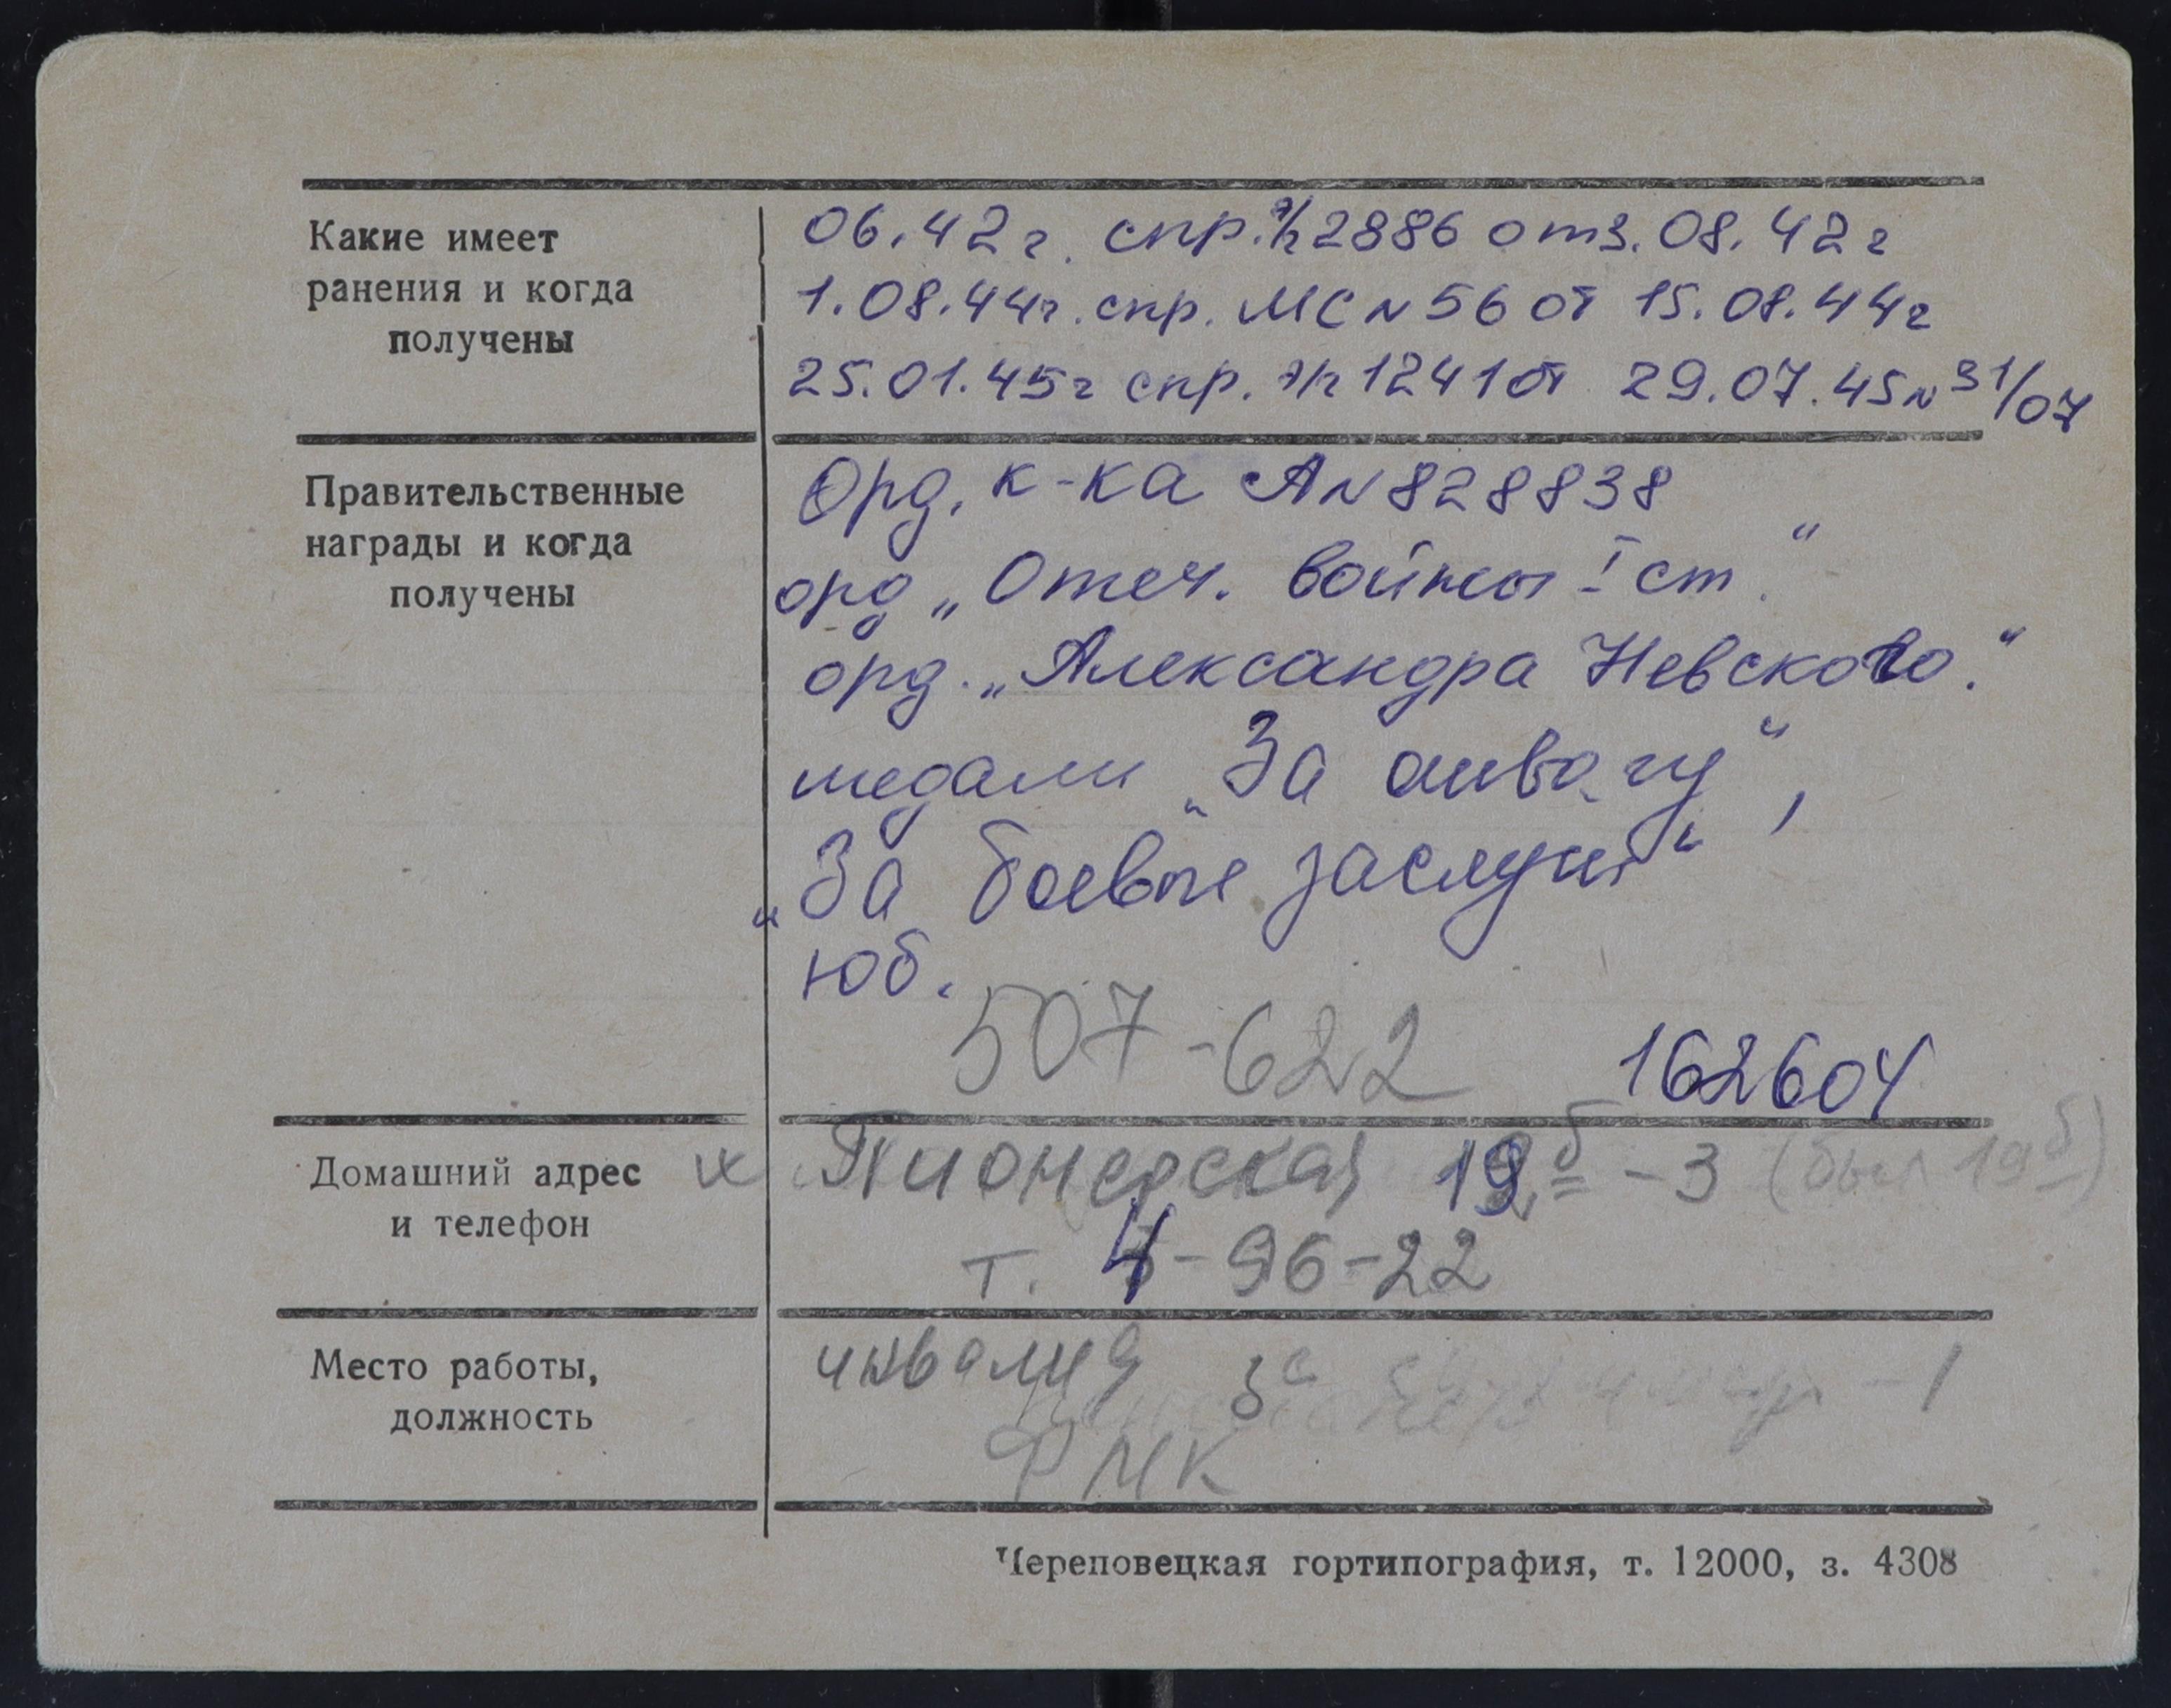 Какие имеет
ранения и когда
получены
06.42г. спр. э/г 2886 от 3.08.42г
1.08.44г. спр. МС N 56 от 15.08.44г
25.01.45г спр. э/г 1241 от 29.07.45 N 31/07
Правительственные
награды и когда
получены
Орд. к-ка А N 828838
орд „Отеч. войны I ст."
орд. „Александра Невского."
медали „За отвагу",
„За боевые заслуги"
юб.
507-622 162604
Домашний адрес
и телефон
Пионерская 19б - 3 (был 19б)
т. 4-96-22
Место работы,
должность
инвалид
ФМК
Череповецкая гортипография, т. 12000, з. 4308